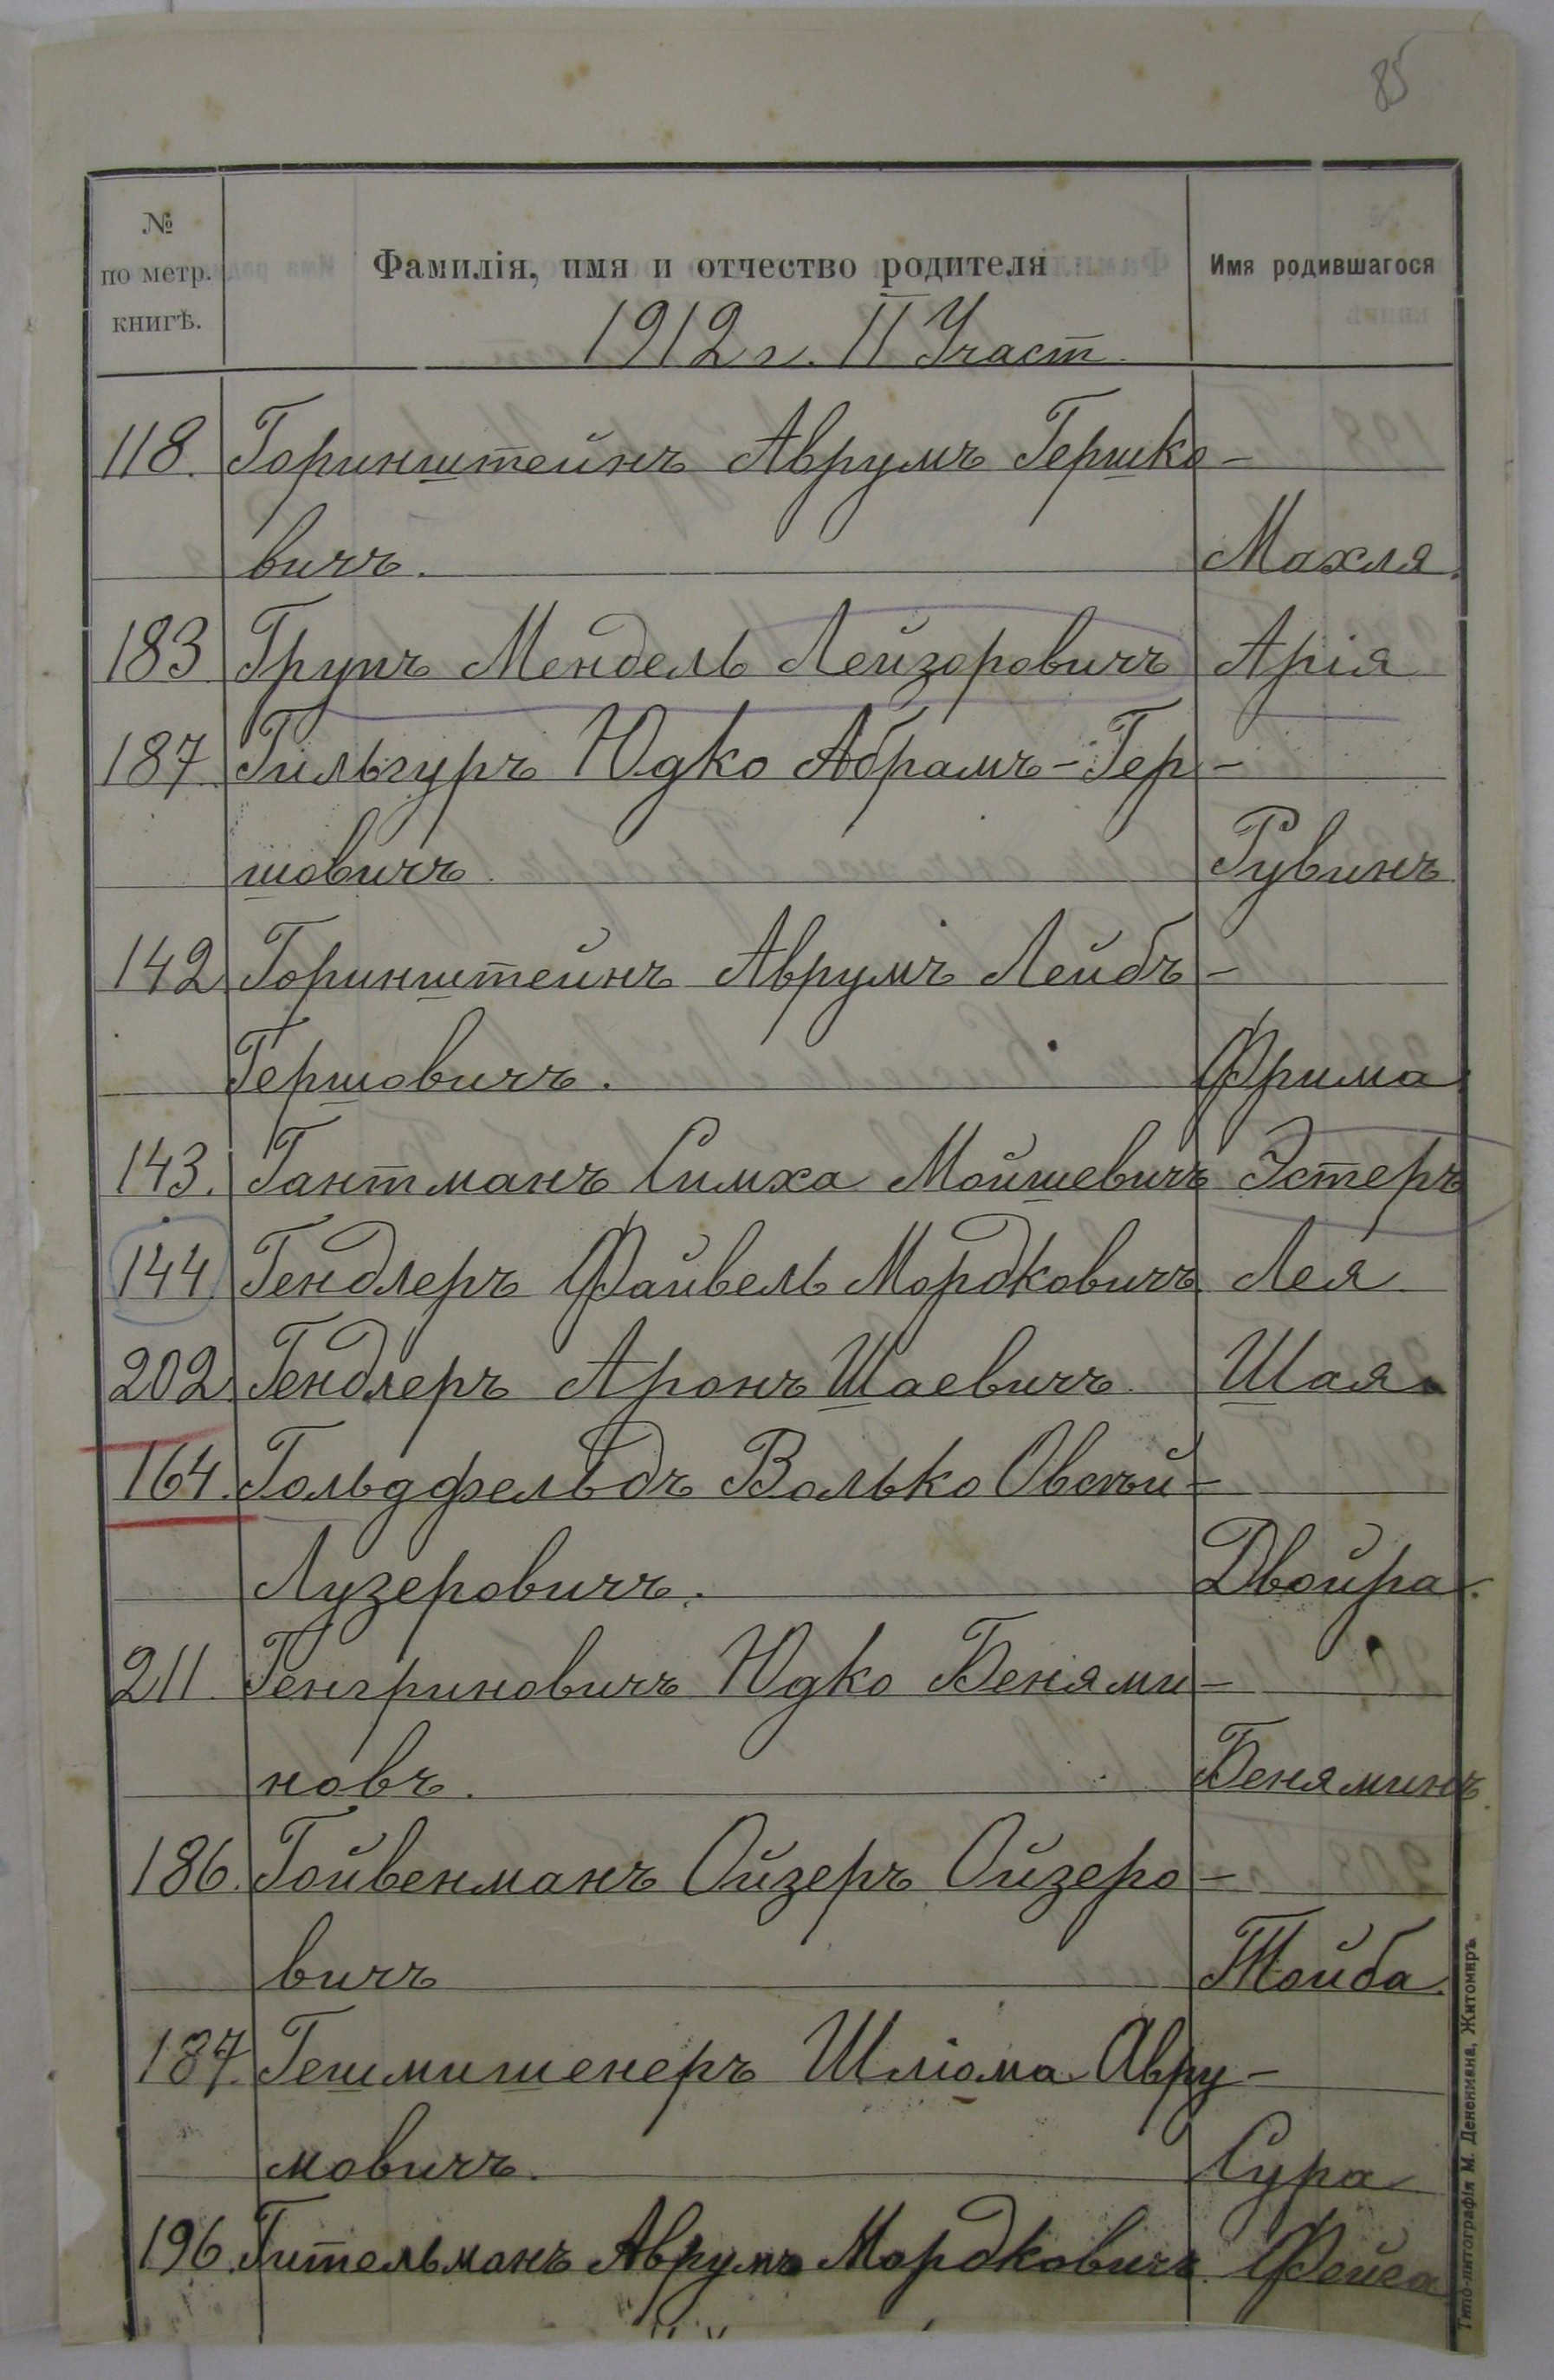 85
№ по метр. книгѣ. Фамилія, имя и отчество родителя Имя родившагося
1912 г. II Участ.
118. Горинштейнъ Аврумъ Гершко-
вичъ. Махля.
183 Групъ Мендель Лейзоровичъ Арія
187. Гильгуръ Юдко Абрамъ-Гер-
шовичъ. Рувинъ
142 Горинштейнъ Аврумъ Лейбъ-
Гершовичъ. Фрима
143. Гантманъ Симха Мойшевичъ Эстеръ
144 Гендлеръ Файвель Мордковичъ Лея
202. Гендлеръ Аронъ Шаевичъ. Шая.
164. Гольдфельдъ Волько Овсѣй-
Лузеровичъ. Двойра.
211. Генгриновичъ Юдко Беням­и-
новъ. Бенями­нъ.
186. Гойвенманъ Ойзеръ Ойзеро-
вичъ Тойба.
187. Гешмишенеръ Шліома Авру-
мовичъ. Сура
196. Гительманъ Аврумъ Мордковичъ. Фейга
Типо-литографія М. Дененмана, Житомиръ.